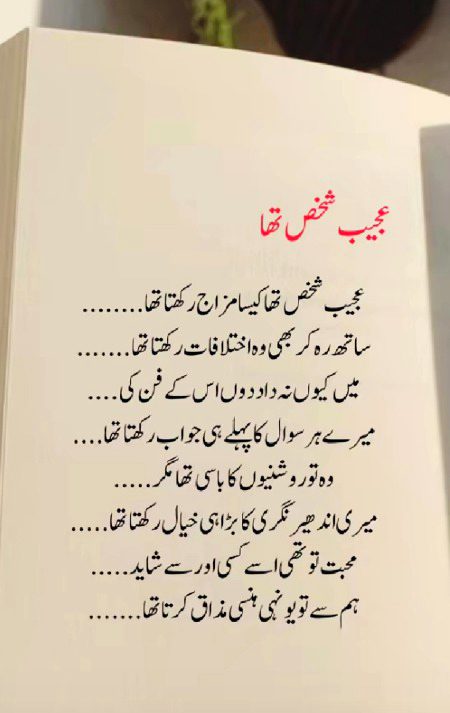 عجیب شخص تھا
عجیب شخص تھا کیسا مزاج رکھتا تھا........
ساتھ رہ کر بھی وہ اختلافات رکھتا تھا.......
میں کیوں نہ داد دوں اس کے فن کی....
میرے ہر سوال کا پہلے ہی جواب رکھتا تھا....
وہ تو روشنیوں کا باسی تھا مگر.....
میری اندھیر نگری کا بڑا ہی خیال رکھتا تھا.....
محبت تو تھی اسے کسی اور سے شاید.....
ہم سے تو یونہی ہنسی مذاق کرتا تھا.......